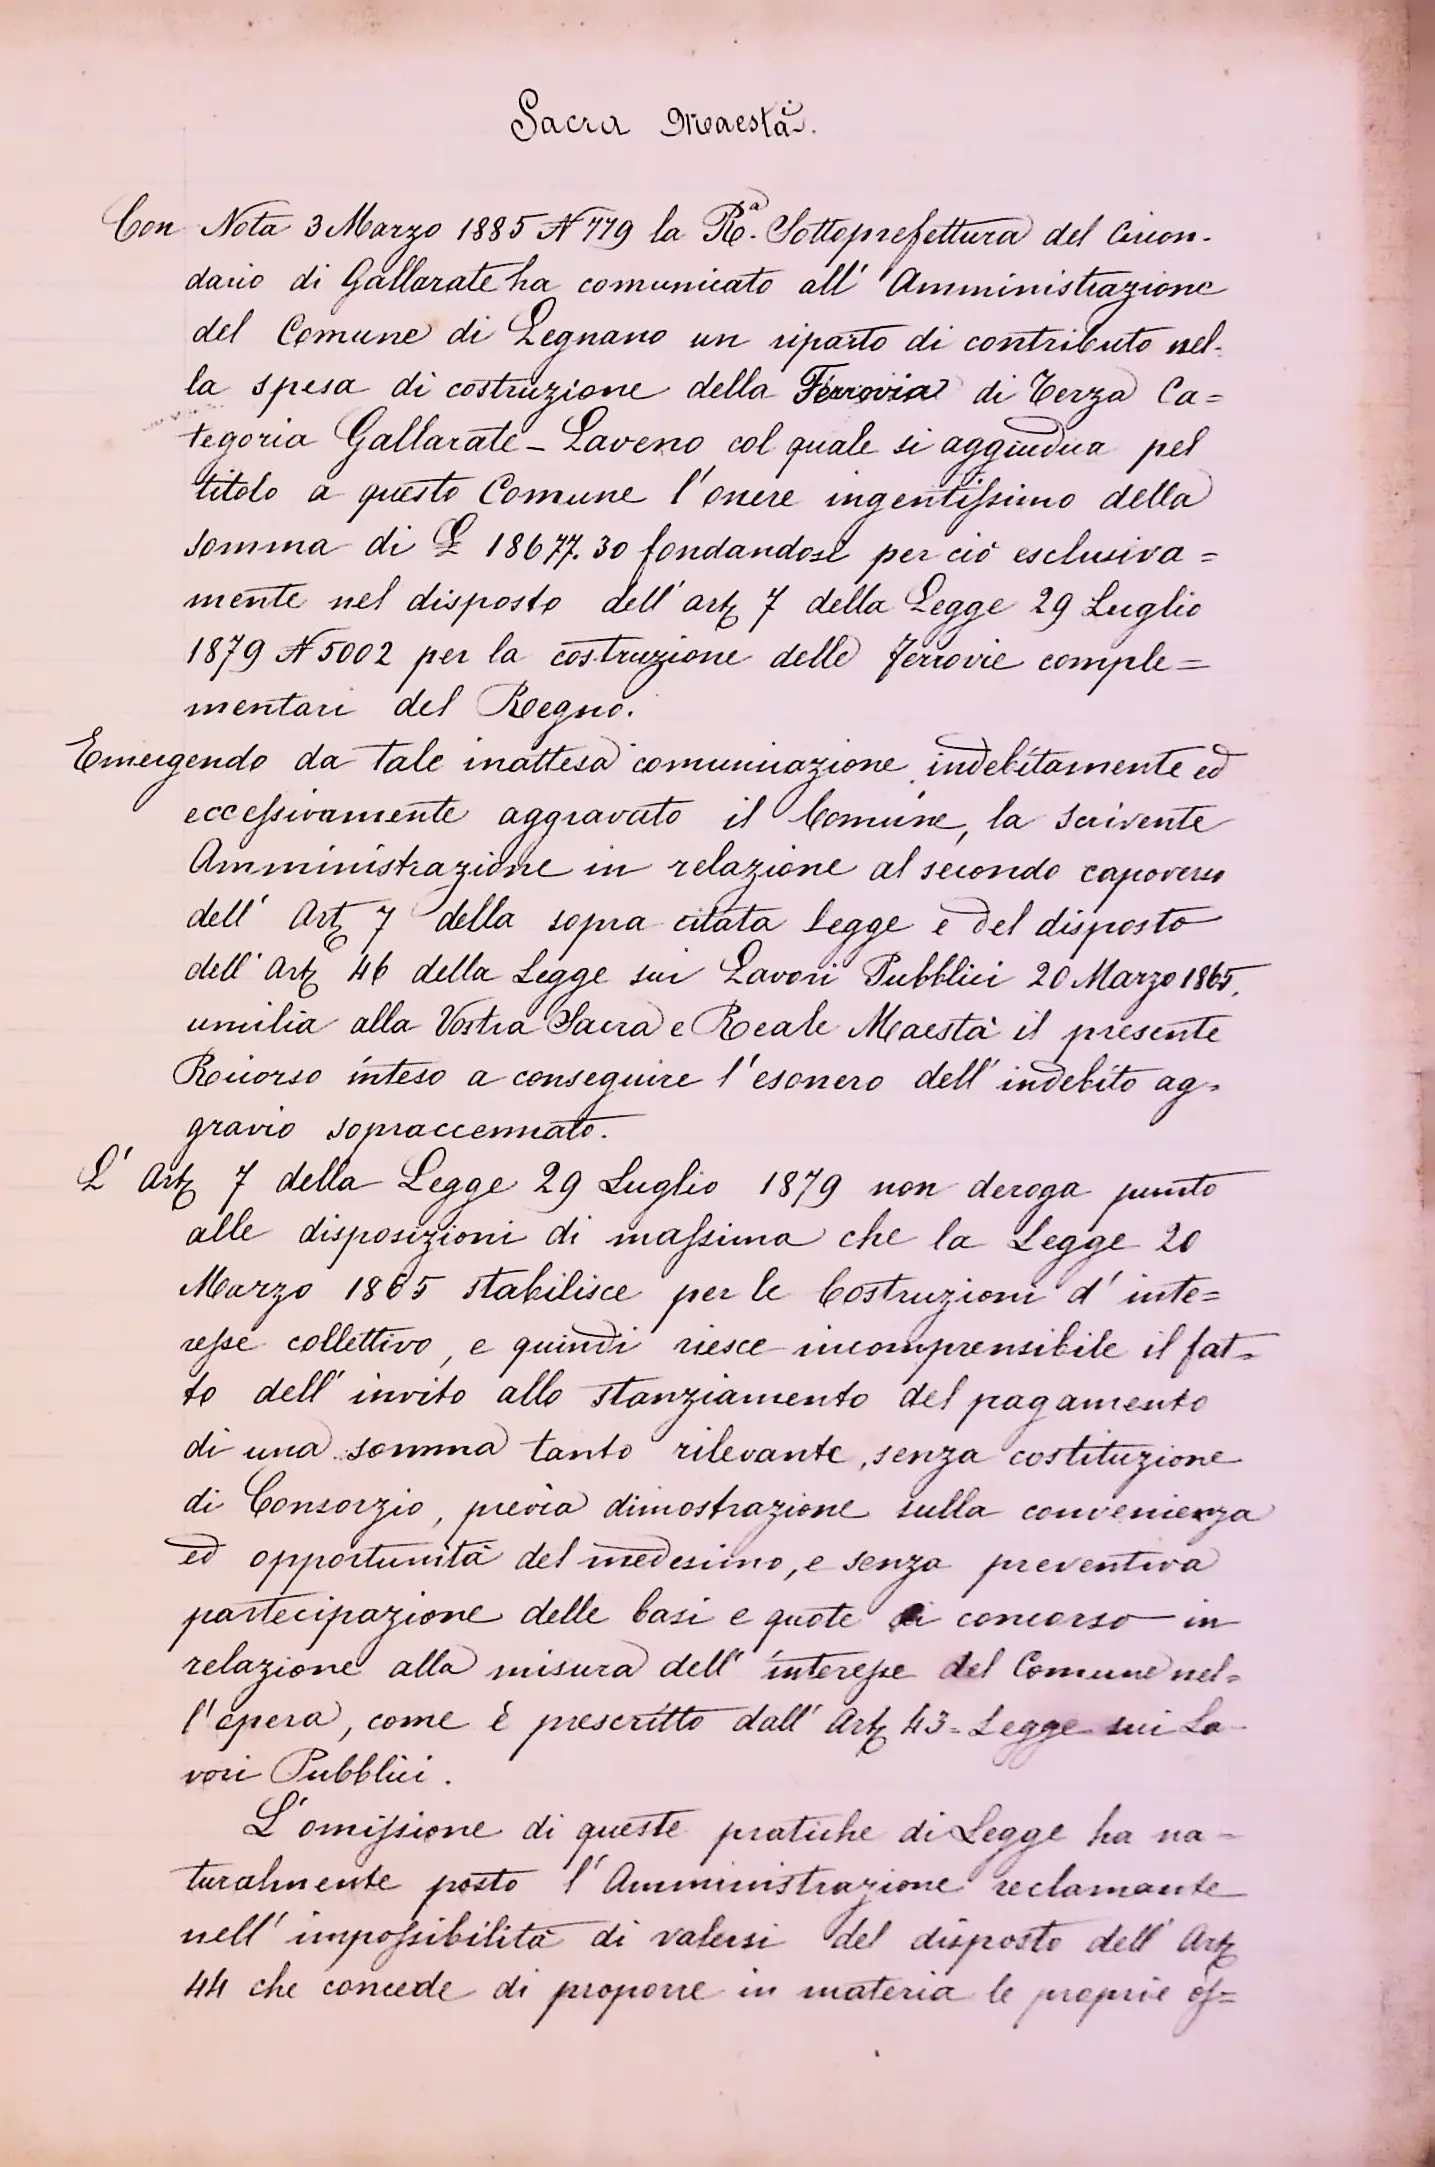 Sacra Maestà.
Con Nota 3 Marzo 1885 N 779 la Rª. Sottoprefettura del Circon-
dario di Gallarate ha comunicato all'Amministrazione
del Comune di Legnano un riparto di contributo nel-
la spesa di costruzione della Ferrovia di Terza Ca=
tegoria Gallarate-Laveno col quale si aggiudica pel
titolo a questo Comune l'onere ingentissimo della
somma di L 18677.30 fondandosi per ciò esclusiva=
mente nel disposto dell'art. 7 della Legge 29 Luglio
1879 N 5002 per la costruzione delle ferrovie comple=
mentari del Regno.
Emergendo da tale inattesa comunicazione indebitamente ed
eccessivamente aggravato il Comune, la scrivente
Amministrazione in relazione al secondo capoverso
dell'Art. 7 della sopra citata legge e del disposto
dell'Art. 46 della Legge sui Lavori Pubblici 20 Marzo 1865,
umilia alla Vostra Sacra e Reale Maestà il presente
Ricorso inteso a conseguire l'esonero dell'indebito ag-
gravio sopraccennato.
L'Art. 7 della Legge 29 Luglio 1879 non deroga punto
alle disposizioni di massima che la Legge 20
Marzo 1865 stabilisce per le Costruzioni d'inte=
resse collettivo, e quindi riesce incomprensibile il fat=
to dell'invito allo stanziamento del pagamento
di una somma tanto rilevante, senza costituzione
di Consorzio, previa dimostrazione sulla convenienza
ed opportunità del medesimo, e senza preventiva
partecipazione delle basi e quote di concorso in
relazione alla misura dell'interesse del Comune nel=
l'opera, come è prescritto dall'Art. 43 = Legge sui La-
vori Pubblici.
L'omissione di queste pratiche di Legge ha na-
turalmente posto l'Amministrazione reclamante
nell'impossibilità di valersi del disposto dell'Art.
44 che concede di proporre in materia le proprie of=